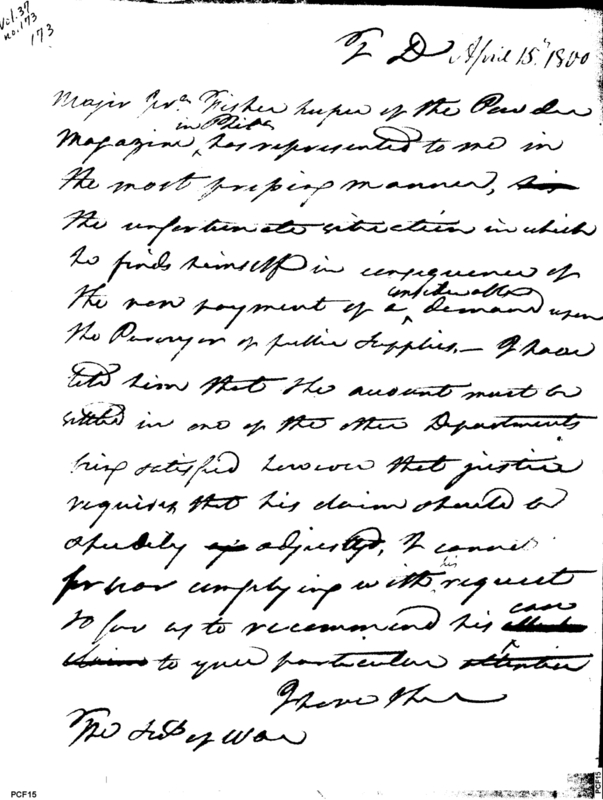 Vol. 37
no. 173
173
T D April 15th 1800
Major Fisher keeper of the Powder
in Phila
Magazine, has represented to me in
the most pressing manner,
the unfortunate situation in which
he finds himself in consequence of
considerable
the non payment of a demand upon
the Purveyor of public Supplies,— I have
told him that the account must be
settled in one of the other Departments
being satisfied however that justice
requires that his claim should be
speedily adjusted, I cannot
forbear complying with his request
so far as to recommend his case
claim to your particular attention
I have the
The Secy of War
PCF15
PCF15